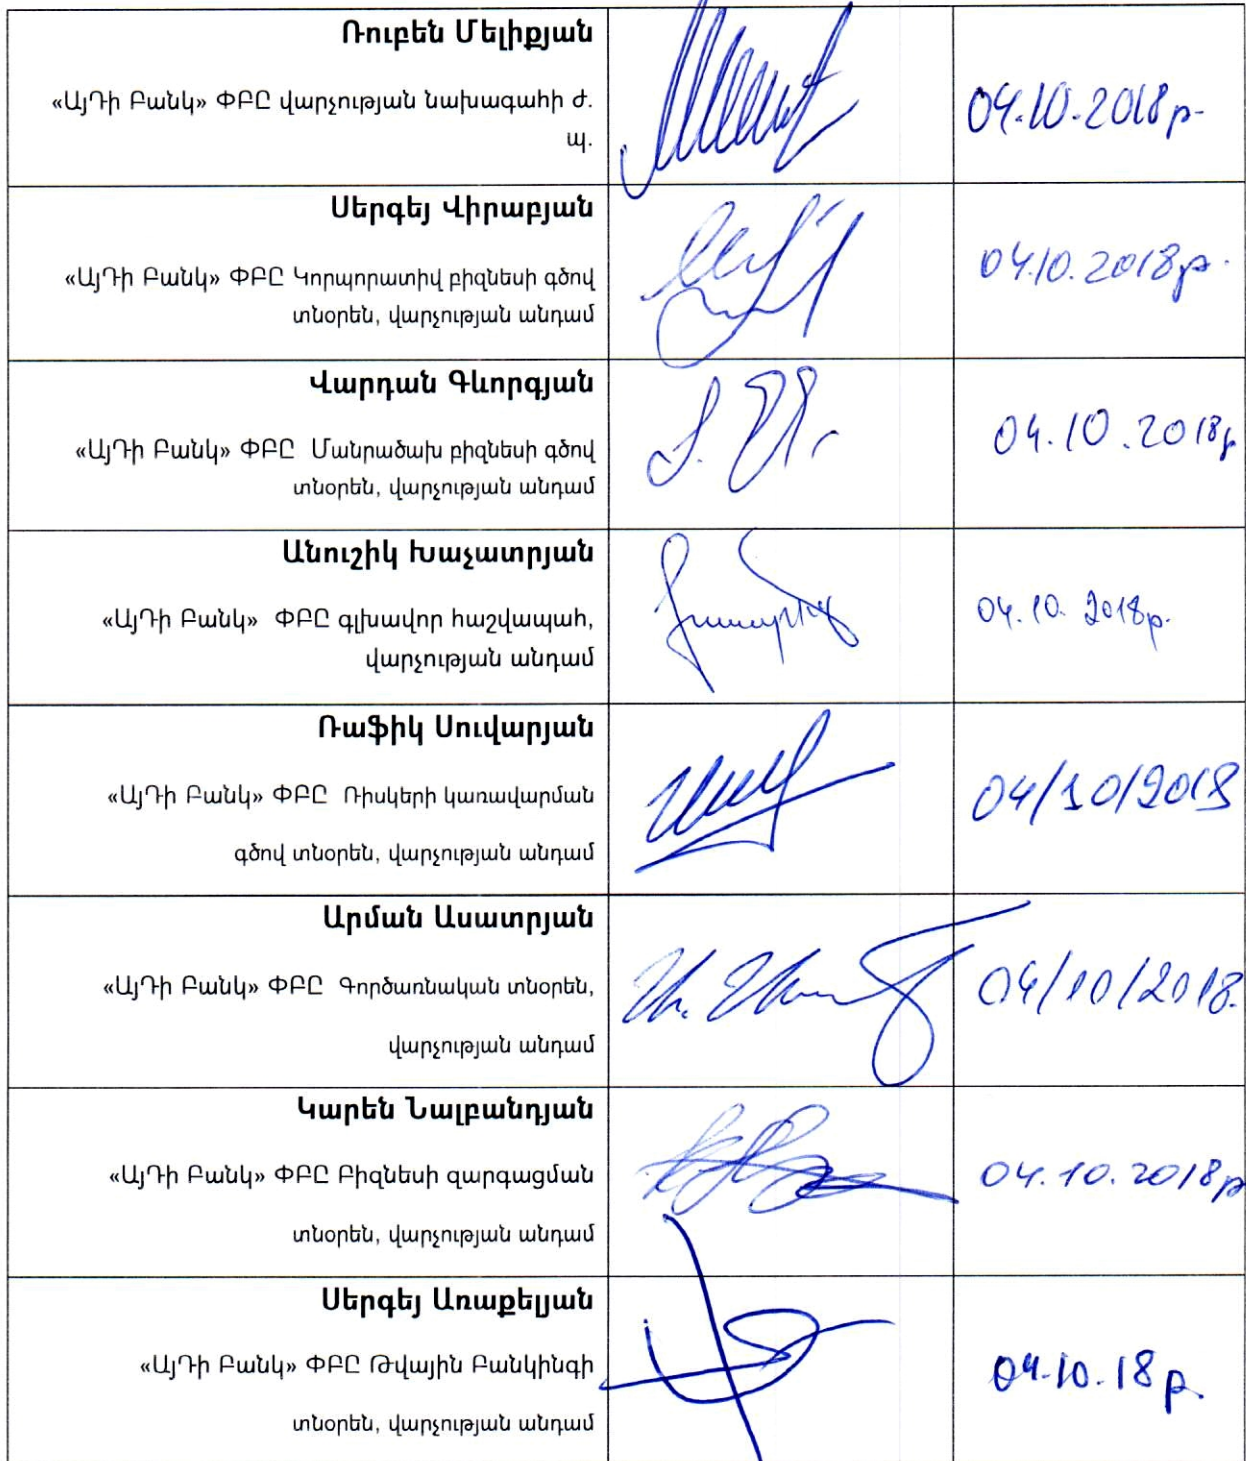 Ռուբեն Մելիքյան
«ԱյԴի Բանկ» ՓԲԸ վարչության նախագահի ժ.
պ.
04.10.2018թ.
Սերգեյ Վիրաբյան
«ԱյԴի Բանկ» ՓԲԸ Կորպորատիվ բիզնեսի գծով
տնօրեն, վարչության անդամ
04.10.2018թ.
Վարդան Գևորգյան
«ԱյԴի Բանկ» ՓԲԸ Մանրածախ բիզնեսի գծով
տնօրեն, վարչության անդամ
04.10.2018թ
Անուշիկ Խաչատրյան
«ԱյԴի Բանկ» ՓԲԸ գլխավոր հաշվապահ,
վարչության անդամ
04.10.2018թ.
Ռաֆիկ Սուվարյան
«ԱյԴի Բանկ» ՓԲԸ Ռիսկերի կառավարման
գծով տնօրեն, վարչության անդամ
04/10/2018
Արման Ասատրյան
«ԱյԴի Բանկ» ՓԲԸ Գործառնական տնօրեն,
վարչության անդամ
04/10/2018.
Կարեն Նալբանդյան
«ԱյԴի Բանկ» ՓԲԸ Բիզնեսի զարգացման
տնօրեն, վարչության անդամ
04.10.2018թ
Սերգեյ Առաքելյան
«ԱյԴի Բանկ» ՓԲԸ Թվային Բանկինգի
տնօրեն, վարչության անդամ
04.10.18թ.